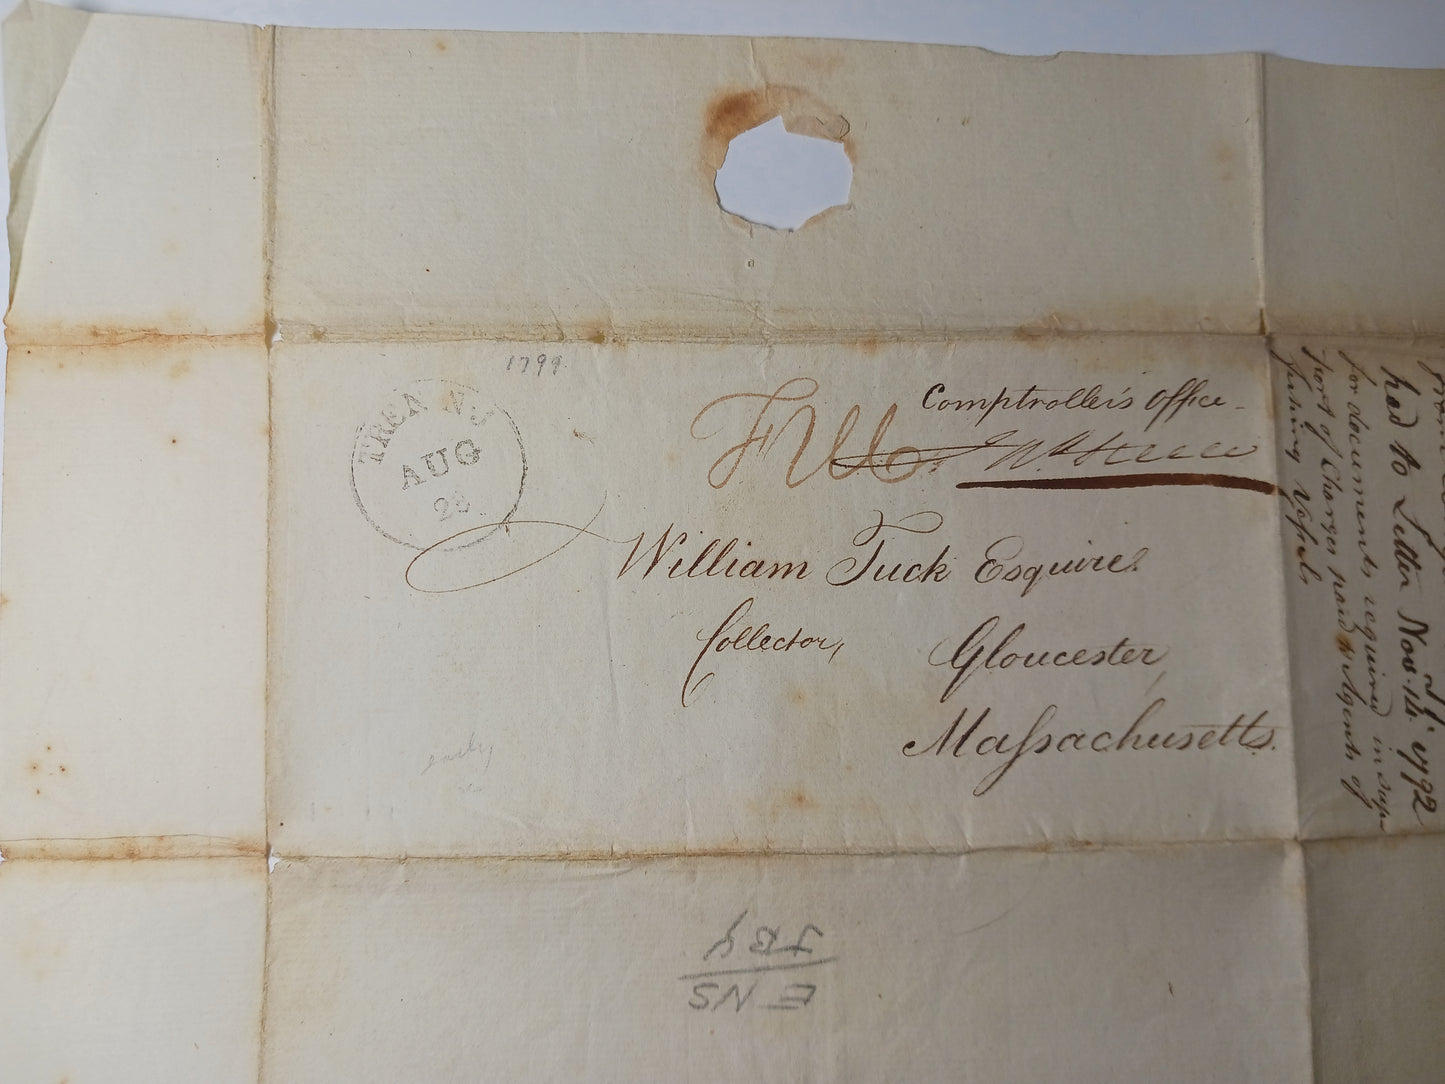 1799
TREN. N.J
AUG
28
Comptroller's Office
FREE
Jn° Steele
William Tuck Esquire
Collector,
Gloucester,
Massachusetts.
early
had to Letter Nov. 14. 1792
for documents required in sup
port of Charges paid to Agents of
fishing Vessels
ENS
JBY